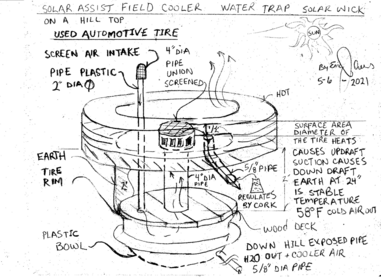 SOLAR ASSIST FIELD COOLER WATER TRAP SOLAR WICK
ON A HILL TOP
USED AUTOMOTIVE TIRE
SUN
SCREEN AIR INTAKE
4" DIA
PIPE
UNION
SCREENED
PIPE PLASTIC
2" DIA Φ
5-6-2021
HOT
SURFACE AREA
DIAMETER OF
THE TIRE HEATS
CAUSES UPDRAFT
SUCTION CAUSES
DOWN DRAFT
EARTH AT 24"
IS STABLE
TEMPERATURE
58°F COLD AIR OUT
5/8" PIPE
REGULATES
BY CORK
EARTH
TIRE
RIM
4" DIA
PIPE
WOOD DECK
PLASTIC
BOWL
DOWN HILL EXPOSED PIPE
H2O OUT + COOLER AIR
5/8" DIA PIPE